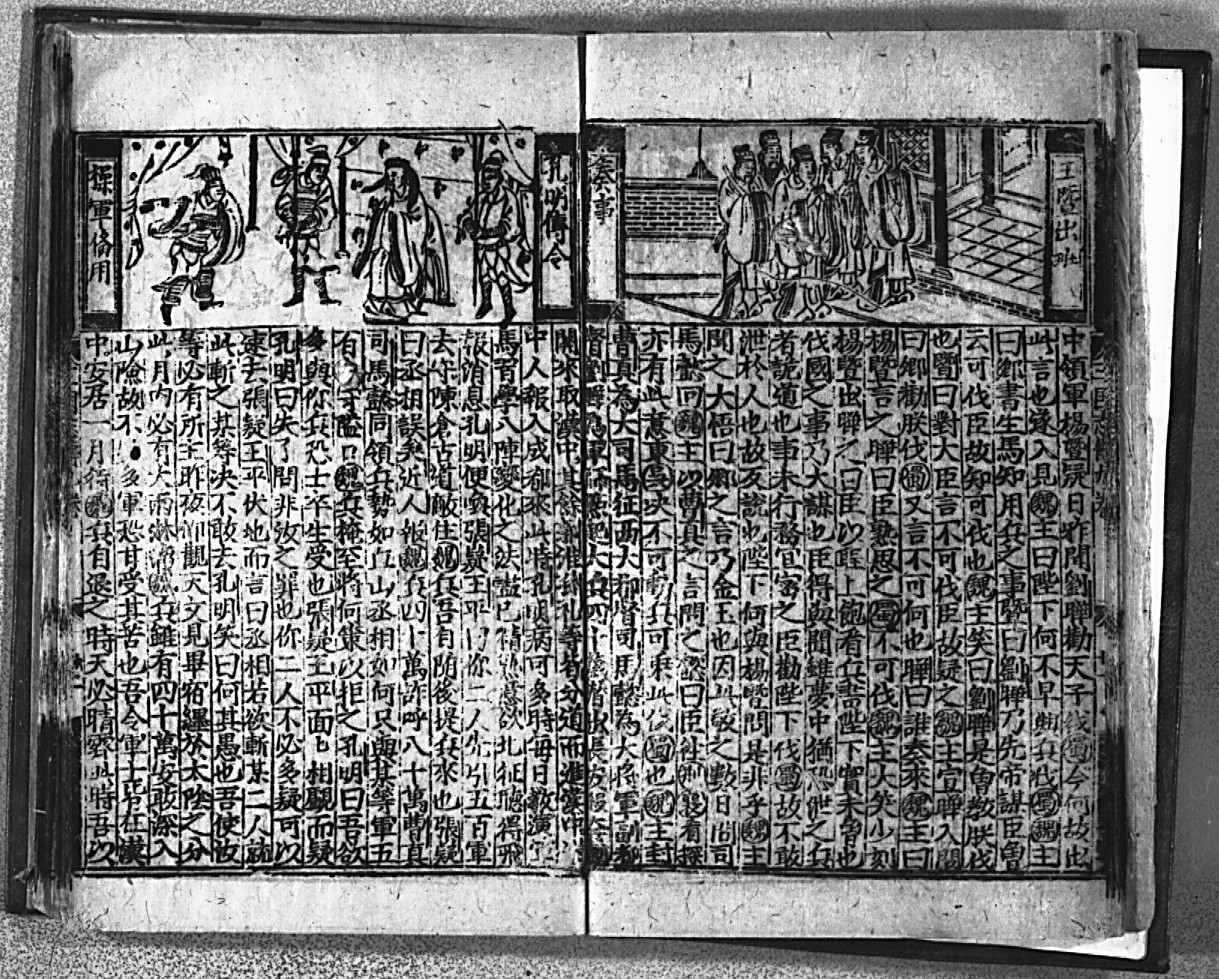 王暨出班
奏事
中領軍楊暨是日昨聞劉曄勸天子伐蜀今何故出
此言也遂入見魏主曰陛下何不早興兵伐蜀魏主
曰卿書生焉知用兵之事暨曰劉曄乃先帝謀臣曾
云可伐臣故知可伐也魏主笑曰劉曄是曾教朕伐
也暨曰對大臣言不可伐臣故疑之魏主宣曄入問
曰卿勸朕伐蜀又言不可何也曄曰誰奏來魏主曰
楊暨言之曄曰臣熟思之蜀不可伐魏主大笑少刻
楊暨出曄乃曰臣以陛上飽看兵書陛下實未曾也
伐國之事乃大謀也臣得與聞雖夢中猶恐泄之兵
者詭道也事未行務宜密之臣勸陛下伐蜀故不敢
泄於人也故反說也陛下何與楊暨問是非乎魏主
聞之大悟曰卿之言乃金玉也因此敬之數日間司
馬懿回魏主以曹真之言問之懿曰臣往荊襄看探
亦有此意東吳決不可動兵可乘此伐蜀也魏主封
曹真為大司馬征西大都督司馬懿為大將軍副都
督劉曄為軍師
孔明傳令
操軍備用
開來取漢中其餘等皆分道而進漢中
中人報入成都來此時孔明病可多時每日教演
馬習學八陣變化之法盡已精熟意欲北征聽得飛
報消息孔明便喚張嶷王平你二人先引五百軍
去守陳倉古道敵住魏兵吾自隨後提兵來也張嶷
曰丞相誤矣近人報魏兵四十萬詐呼八十萬曹真
司馬懿同領兵勢如丘山丞相如何只與某等軍五
有守隘口魏兵掩至將何策以拒之孔明曰吾欲
與你兵恐士卒生受也張嶷王平面匕相覷而疑
孔明曰失了關非汝之罪也你二人不必多疑可以
速去張嶷王平伏地而言曰丞相若欲斬某二人就
此斬之某等決不敢去孔明笑曰何其愚也吾使汝
等必有所主昨夜仰觀天文見畢宿纏於太陰之分
此月內必有大雨淋漓魏兵雖有四十萬安敢深入
山險故不多軍恐甘受其苦也吾令軍士皆在漢
中安居一月待魏兵自退之時天必晴此時吾以